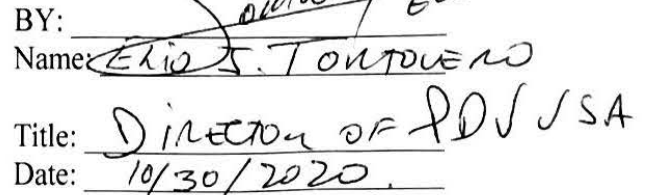 BY:
Name: Elio J. TORTOLERO
Title: DIRECTOR OF PDV USA
Date: 10/30/2020.